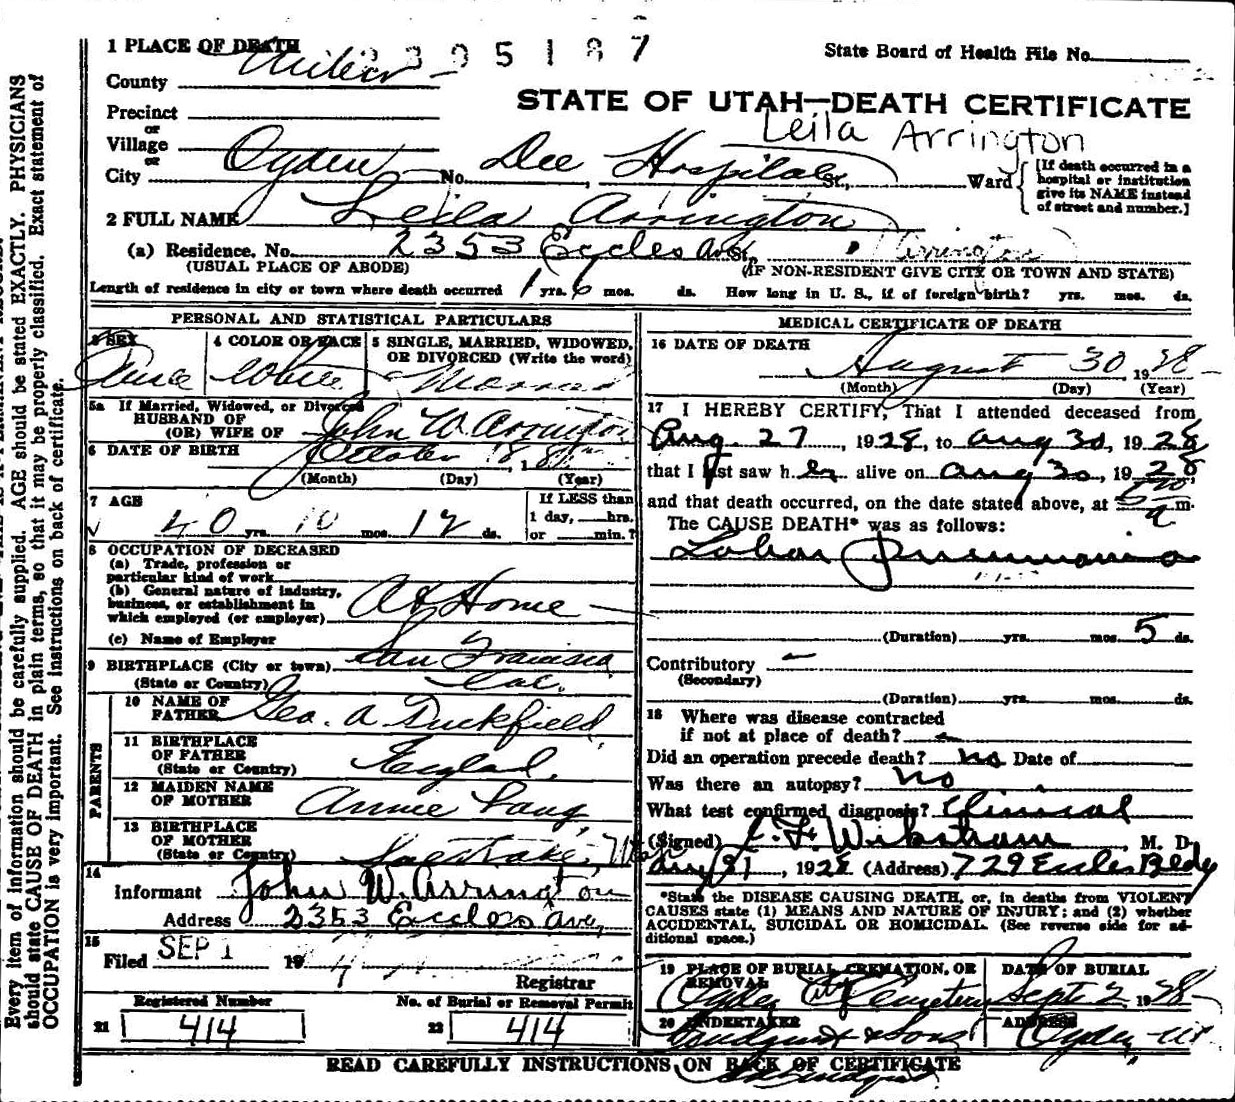 1 PLACE OF DEATH
2395187
State Board of Health File No.
County
STATE OF UTAH—DEATH CERTIFICATE
Leila Arrington
Precinct
or
Village
or
City Ogden No. Dee Hospital St., Ward
[If death occurred in a hospital or institution give its NAME instead of street and number.]
2 FULL NAME Leila Arrington
(a) Residence. No. 2353 Eccles Ave St., Arrington
(USUAL PLACE OF ABODE) (IF NON-RESIDENT GIVE CITY OR TOWN AND STATE)
Length of residence in city or town where death occurred 1 yrs. 6 mos. ds. How long in U. S., if of foreign birth? yrs. mos. ds.
PERSONAL AND STATISTICAL PARTICULARS
3 SEX
4 COLOR OR RACE White
5 SINGLE, MARRIED, WIDOWED, OR DIVORCED (Write the word) Married
5a If Married, Widowed, or Divorced
HUSBAND OF
(OR) WIFE OF John W. Arrington
6 DATE OF BIRTH October 18
(Month) (Day) (Year)
7 AGE 40 yrs. 10 mos. 12 ds.
If LESS than
1 day, hrs.
or min.?
8 OCCUPATION OF DECEASED
(a) Trade, profession or
particular kind of work
(b) General nature of industry,
business, or establishment in
which employed (or employer) At Home
(c) Name of Employer
9 BIRTHPLACE (City or town) San Francisco
(State or Country) Cal.
PARENTS
10 NAME OF
FATHER Geo. A. Duckfield
11 BIRTHPLACE
OF FATHER
(State or Country) England
12 MAIDEN NAME
OF MOTHER Annie
13 BIRTHPLACE
OF MOTHER
(State or Country) Salt Lake, Utah
14
Informant John W. Arrington
Address 2353 Eccles Ave,
15
Filed SEP 1 19
Registrar
Registered Number
21 414
No. of Burial or Removal Permit
22 414
MEDICAL CERTIFICATE OF DEATH
16 DATE OF DEATH
August 30 1928
(Month) (Day) (Year)
17 I HEREBY CERTIFY, That I attended deceased from
Aug. 27, 1928, to Aug 30, 1928
that I last saw her alive on Aug 30, 1928
and that death occurred, on the date stated above, at m.
The CAUSE DEATH* was as follows:
Lobar Pneumonia
(Duration) yrs. mos. 5 ds.
Contributory –
(Secondary)
(Duration) yrs. mos. ds.
18 Where was disease contracted
if not at place of death? –
Did an operation precede death? no Date of
Was there an autopsy? no
What test confirmed diagnosis? Clinical
(Signed) M. D.
1928 (Address) 729 Eccles Bldg
*State the DISEASE CAUSING DEATH, or, in deaths from VIOLENT
CAUSES state (1) MEANS AND NATURE OF INJURY; and (2) whether
ACCIDENTAL, SUICIDAL OR HOMICIDAL. (See reverse side for ad-
ditional space.)
19 PLACE OF BURIAL CREMATION, OR
REMOVAL
Ogden City Cemetery
DATE OF BURIAL
Sept 2 1928
20 UNDERTAKER
& Sons
ADDRESS
Ogden Ut
READ CAREFULLY INSTRUCTIONS ON BACK OF CERTIFICATE
Every item of information should be carefully supplied. AGE should be stated EXACTLY. PHYSICIANS
should state CAUSE OF DEATH in plain terms, so that it may be properly classified. Exact statement of
OCCUPATION is very important. See instructions on back of certificate.